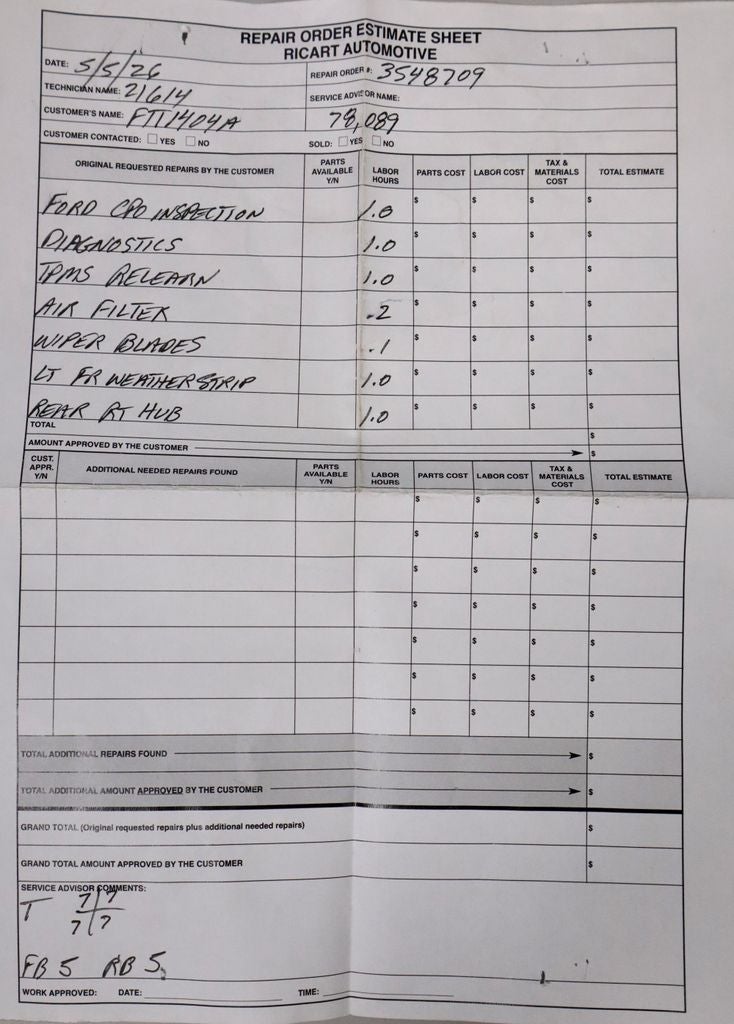 REPAIR ORDER ESTIMATE SHEET
RICART AUTOMOTIVE
DATE: 5/5/26 REPAIR ORDER #: 3548709
TECHNICIAN NAME: 21614 SERVICE ADVISOR NAME:
CUSTOMER'S NAME: FTI1404A 78,089
CUSTOMER CONTACTED: YES NO SOLD: YES NO
ORIGINAL REQUESTED REPAIRS BY THE CUSTOMER PARTS AVAILABLE Y/N LABOR HOURS PARTS COST LABOR COST TAX & MATERIALS COST TOTAL ESTIMATE
FORD CPO INSPECTION 1.0 $ $ $ $
DIAGNOSTICS 1.0 $ $ $ $
TPMS RELEARN 1.0 $ $ $ $
AIR FILTER .2 $ $ $ $
WIPER BLADES .1 $ $ $ $
LT FR WEATHERSTRIP 1.0 $ $ $ $
REAR RT HUB 1.0 $ $ $ $
TOTAL $
AMOUNT APPROVED BY THE CUSTOMER $
CUST. APPR. Y/N ADDITIONAL NEEDED REPAIRS FOUND PARTS AVAILABLE Y/N LABOR HOURS PARTS COST LABOR COST TAX & MATERIALS COST TOTAL ESTIMATE
$ $ $ $
$ $ $ $
$ $ $ $
$ $ $ $
$ $ $ $
$ $ $ $
$ $ $ $
TOTAL ADDITIONAL REPAIRS FOUND $
TOTAL ADDITIONAL AMOUNT APPROVED BY THE CUSTOMER $
GRAND TOTAL (Original requested repairs plus additional needed repairs) $
GRAND TOTAL AMOUNT APPROVED BY THE CUSTOMER $
SERVICE ADVISOR COMMENTS:
T 7 7
7 7
FB 5 RB 5
WORK APPROVED: DATE: TIME: